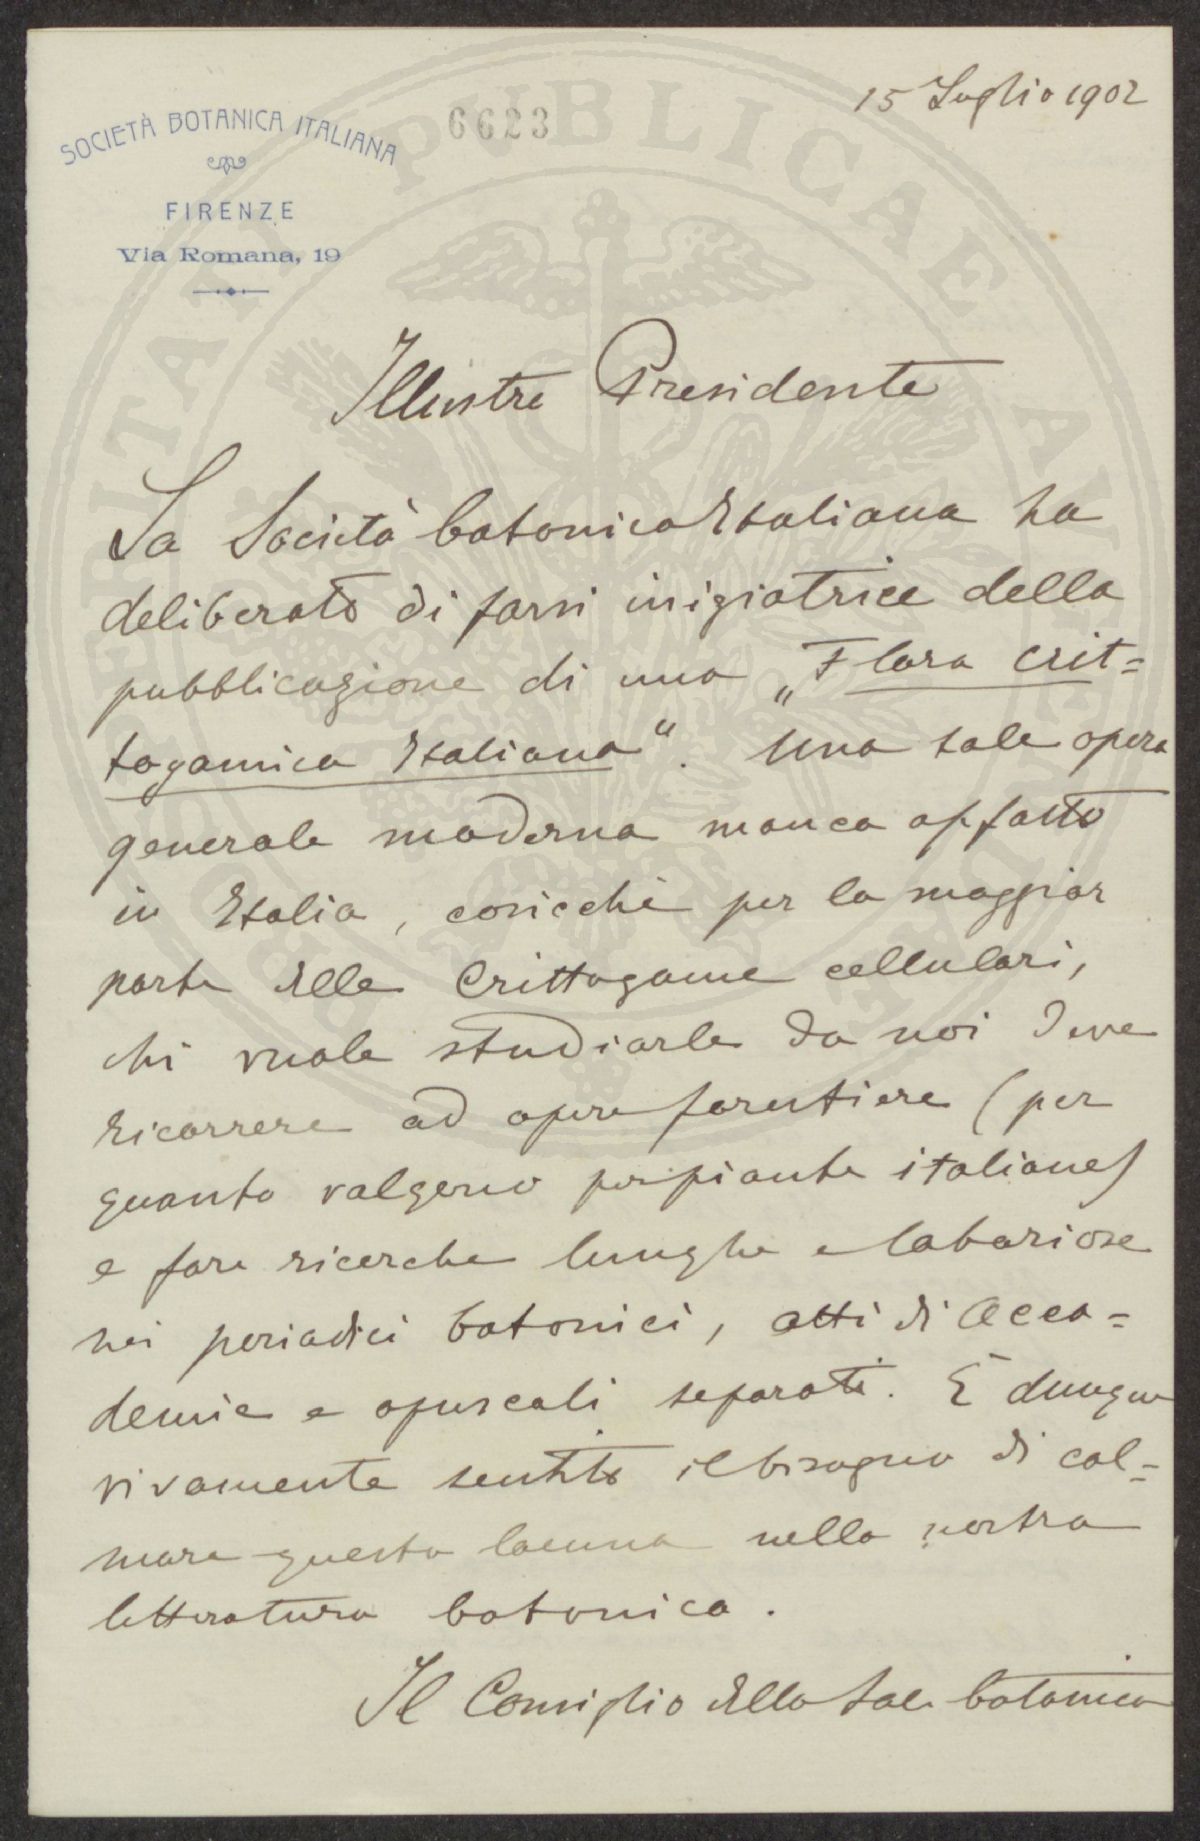 15 Luglio 1902
6623
SOCIETÀ BOTANICA ITALIANA
FIRENZE
Via Romana, 19
Illustre Presidente
La Società botanica Italiana ha
deliberato di farsi iniziatrice della
pubblicazione di una „Flora Crit=
togamica Italiana“. Una tale opera
generale moderna manca affatto
in Italia, cosicchè per la maggior
parte delle Crittogame cellulari,
chi vuole studiarle da noi deve
ricorrere ad opere forestiere (per
quanto valgono per piante italiane)
e fare ricerche lunghe e laboriose
nei periodici botanici, atti di Acca=
demie e opuscoli separati. È dunque
vivamente sentito il bisogno di col=
mare questa lacuna nella nostra
letteratura botanica.
Il Consiglio della Soc. botanica